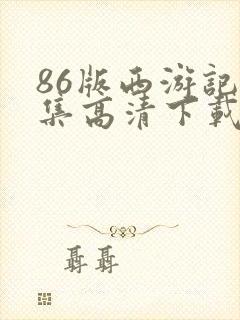 86版西游記
集高清下載
聶聶